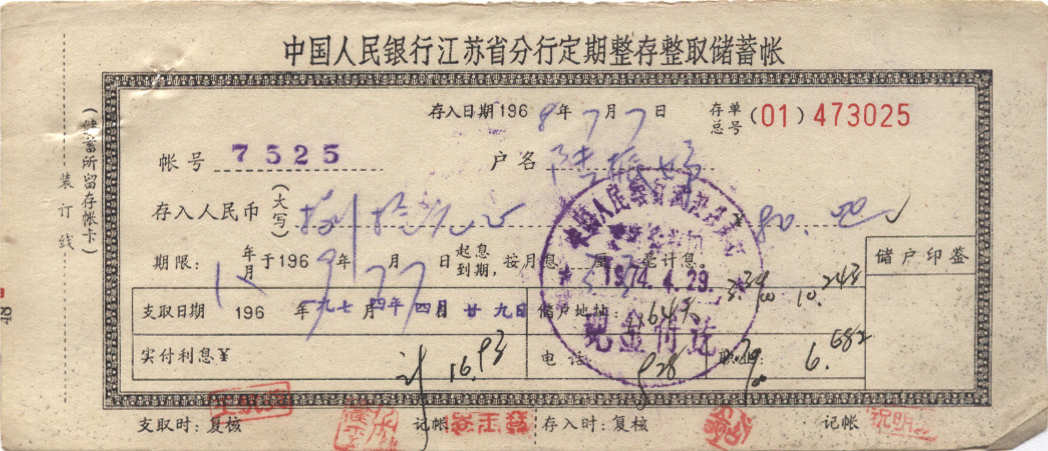 中国人民银行江苏省分行定期整存整取储蓄帐
存入日期1968年7月7日
存单总号(01)473025
帐号 7525
户名
存入人民币(大写)捌拾元正 80.00
期限:1年月于1969年7月7日起息到期,按月息 厘 毫计息。
储户印签
1974.4.29.
现金付讫
3.34 10.243
支取日期 196 年 月 一九七四年四月廿九日
储户地址:
实付利息¥ 计 16.93
电话 职业
6.682
支取时:复核 记帐 存入时:复核 记帐
祝明
(储蓄所留存帐卡)
装订线